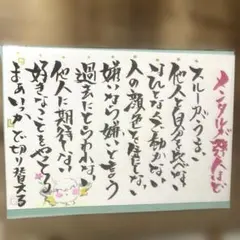 メンタルが強い人ほど
スルーがうまい
他人と自分を比べない
なんとなくで動かない
人の顔色を気にしない
嫌いなら嫌いと言う
過去にとらわれない
他人に期待しない
好きなことをやってる
まぁいっかで切り替える